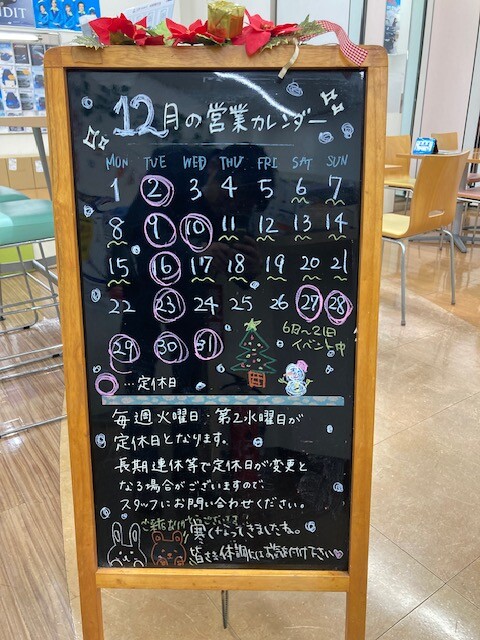 NDIT
12月の営業カレンダー
MON TUE WED THU FRI SAT SUN
1 2 3 4 5 6 7
8 9 10 11 12 13 14
15 16 17 18 19 20 21
22 23 24 25 26 27 28
6日~21日
イベント中
29 30 31
…定休日
毎週火曜日・第2水曜日が
定休日となります。
長期連休等で定休日が変更と
なる場合がございますので
スタッフにお問い合わせください。
寒くなってきましたね。
皆さま体調にはお気を付け下さい